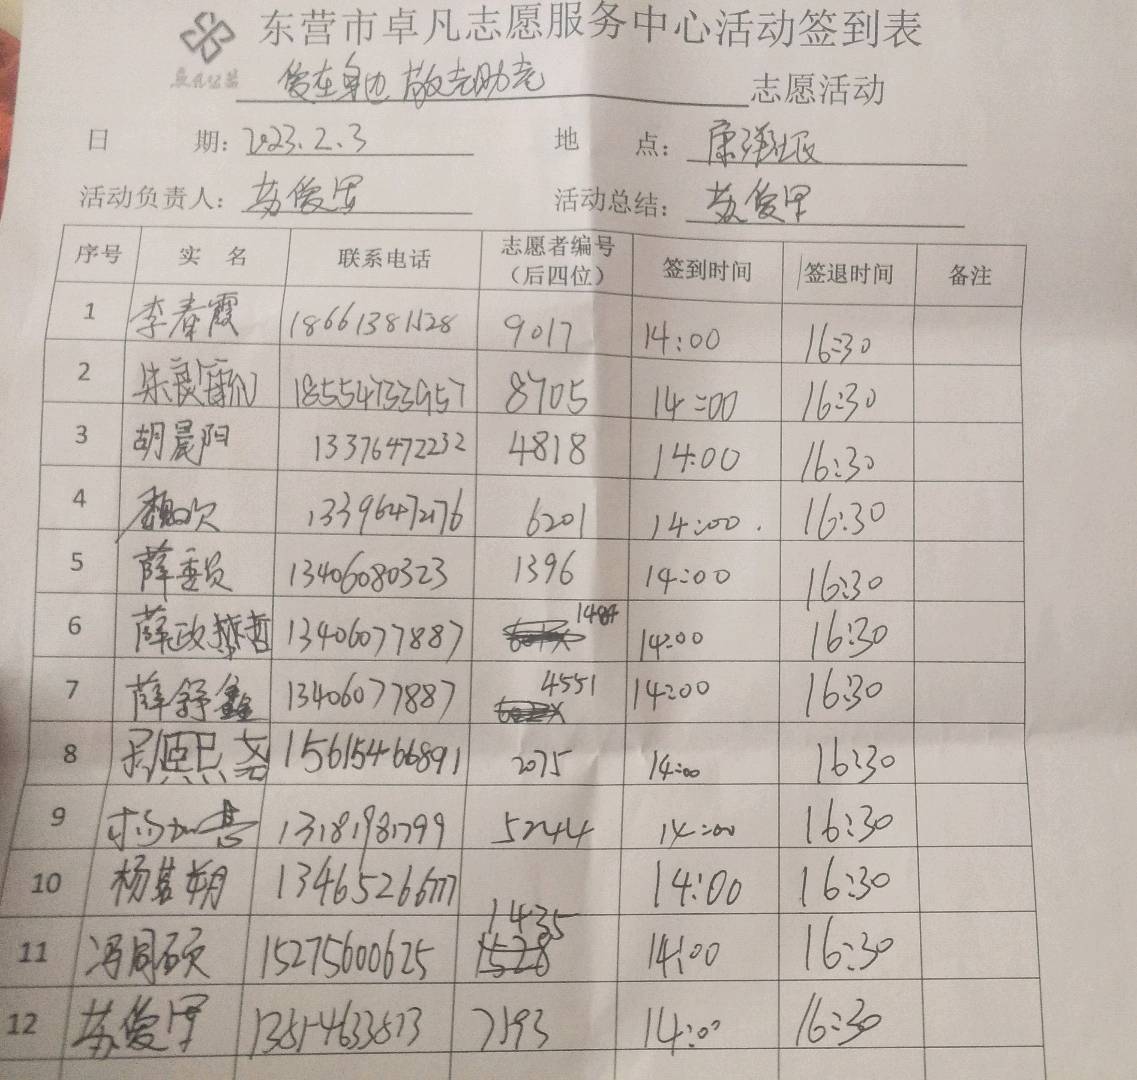 东营市卓凡志愿服务中心活动签到表
爱在身边 敬老助老 志愿活动
日 期：2023.2.3 地 点：康洋社区
活动负责人：苏俊军 活动总结：苏俊军
序号 实 名 联系电话 志愿者编号（后四位） 签到时间 签退时间 备注
1 李春霞 18661381128 9017 14:00 16:30
2 朱良 18554733957 8705 14:00 16:30
3 胡晨阳 13376472232 4818 14:00 16:30
4 魏欢 13396472176 6201 14:00 16:30
5 薛委员 13406080323 1396 14:00 16:30
6 薛政哲 13406077887 1484 14:00 16:30
7 薛舒鑫 13406077887 4551 14:00 16:30
8 熙尧 15615466891 2075 14:00 16:30
9 13181981799 5244 14:00 16:30
10 杨茗朔 13465266777 14:00 16:30
11 冯同硕 15275600625 1435 1528 14:00 16:30
12 苏俊军 13854633813 7193 14:00 16:30